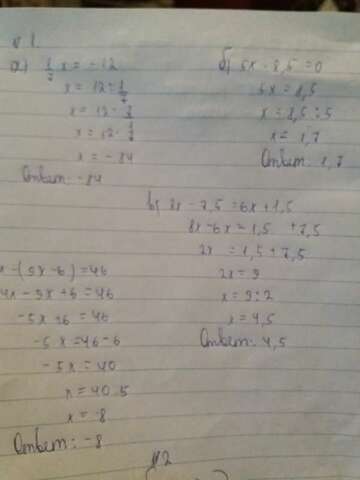 № 1.
а) 1/7 x = -12
x = 12 : 1/7
x = 12 ·
x = 12 ·
x = -84
Ответ: -84
б) 5x - 8,5 = 0
5x = 8,5
x = 8,5 : 5
x = 1,7
Ответ: 1,7
в) 8x - 7,5 = 6x + 1,5
8x - 6x = 1,5 + 7,5
2x = 1,5 + 7,5
2x = 9
x = 9 : 2
x = 4,5
Ответ: 4,5
x - (9x - 6) = 46
4x - 9x + 6 = 46
-5x + 6 = 46
-5x = 46 - 6
-5x = 40
x = 40 : 5
x = -8
Ответ: -8
№ 2